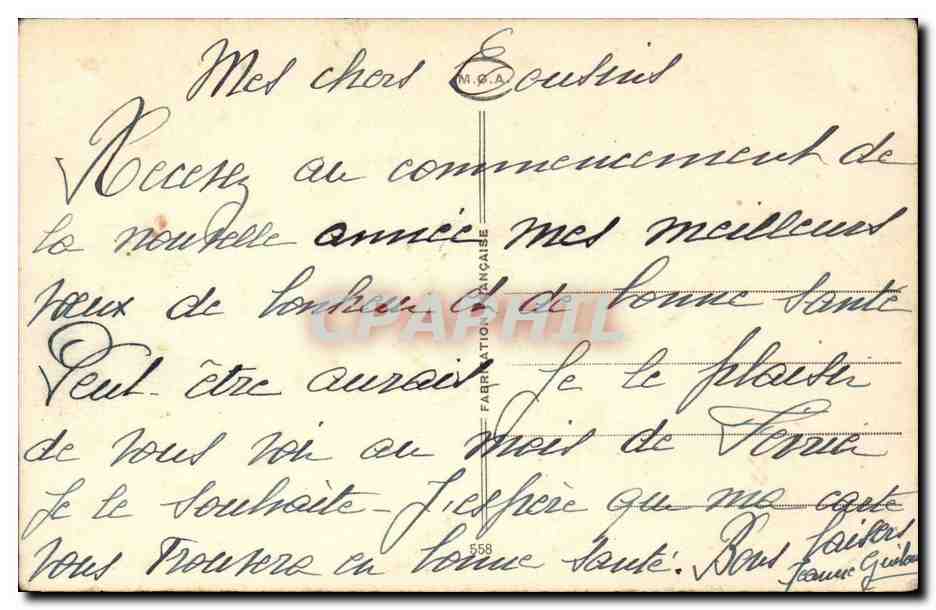 Mes chers Cousins
M.O.A.
Recevez au commencement de
la nouvelle année mes meilleurs
voeux de bonheur et de bonne santé
Peut-être aurais Je le plaisir
de vous voir au mois de Fevrier
Je le souhaite - J'espère que ma carte
vous trouvera en bonne santé. Bons baisers
Jeanne
FABRICATION FRANÇAISE
558
CPAPHIL